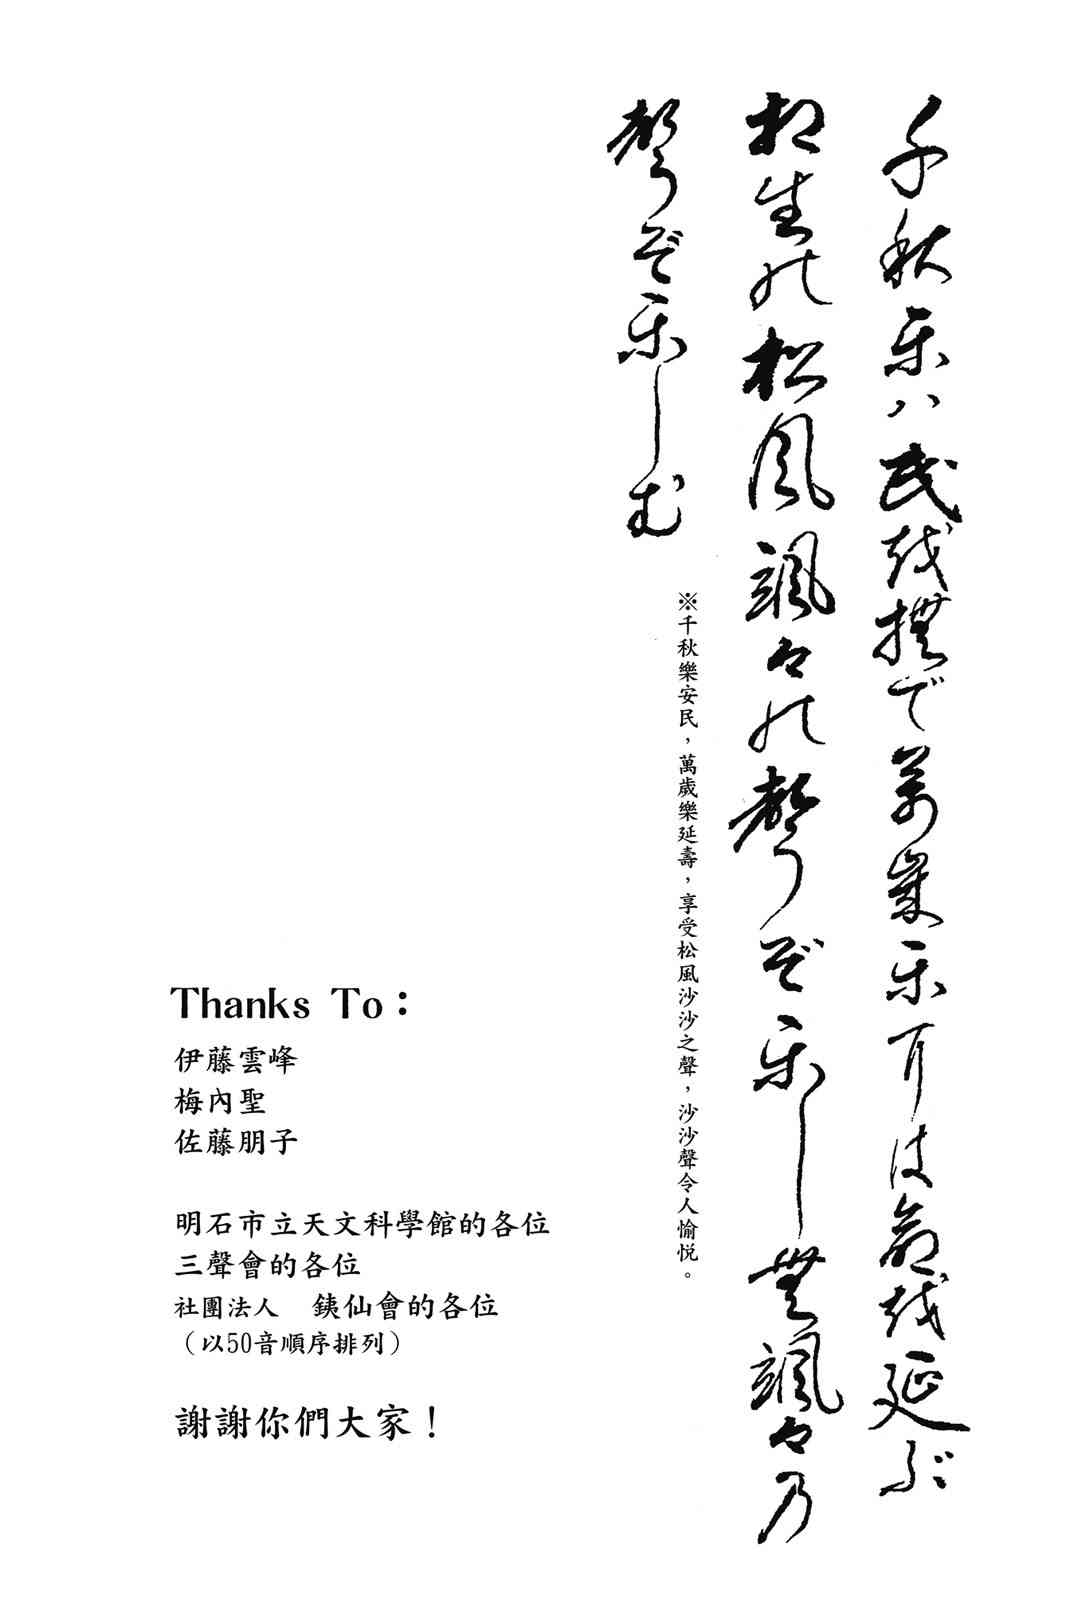 千秋楽ハ民越撫で萬歳楽耳は命越延ぶ
相生能松風颯々能聲ぞ楽し無颯々乃
聲ぞ楽しむ
※千秋樂安民，萬歲樂延壽，享受松風沙沙之聲，沙沙聲令人愉悅。
Thanks To：
伊藤雲峰
梅內聖
佐藤朋子
明石市立天文科學館的各位
三聲會的各位
社團法人　銕仙會的各位
（以50音順序排列）
謝謝你們大家！